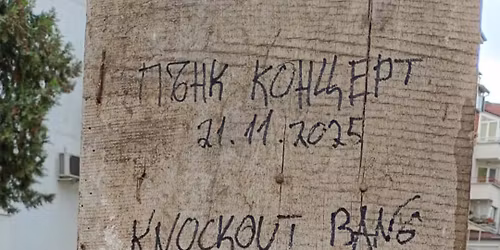 ПЪНК КОНЦЕРТ
21.11.2025
KNOCKOUT BANG